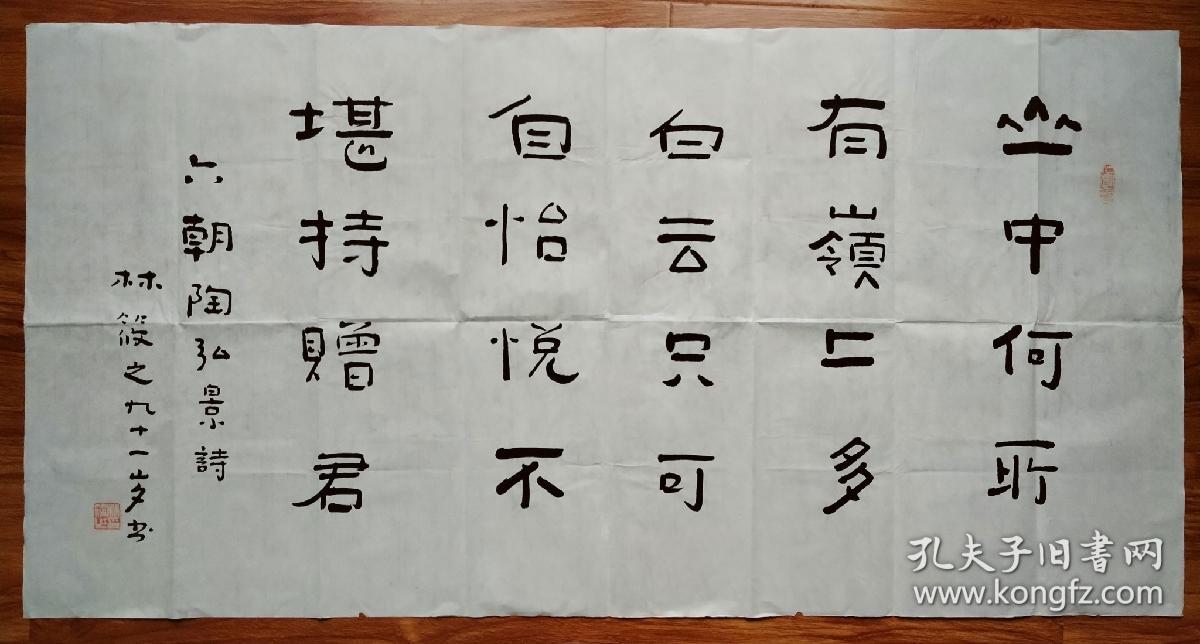 山中何所
有嶺上多
白云只可
自怡悦不
堪持贈君
六朝陶弘景詩
林筱之九十一岁书
孔夫子旧書网
www.kongfz.com